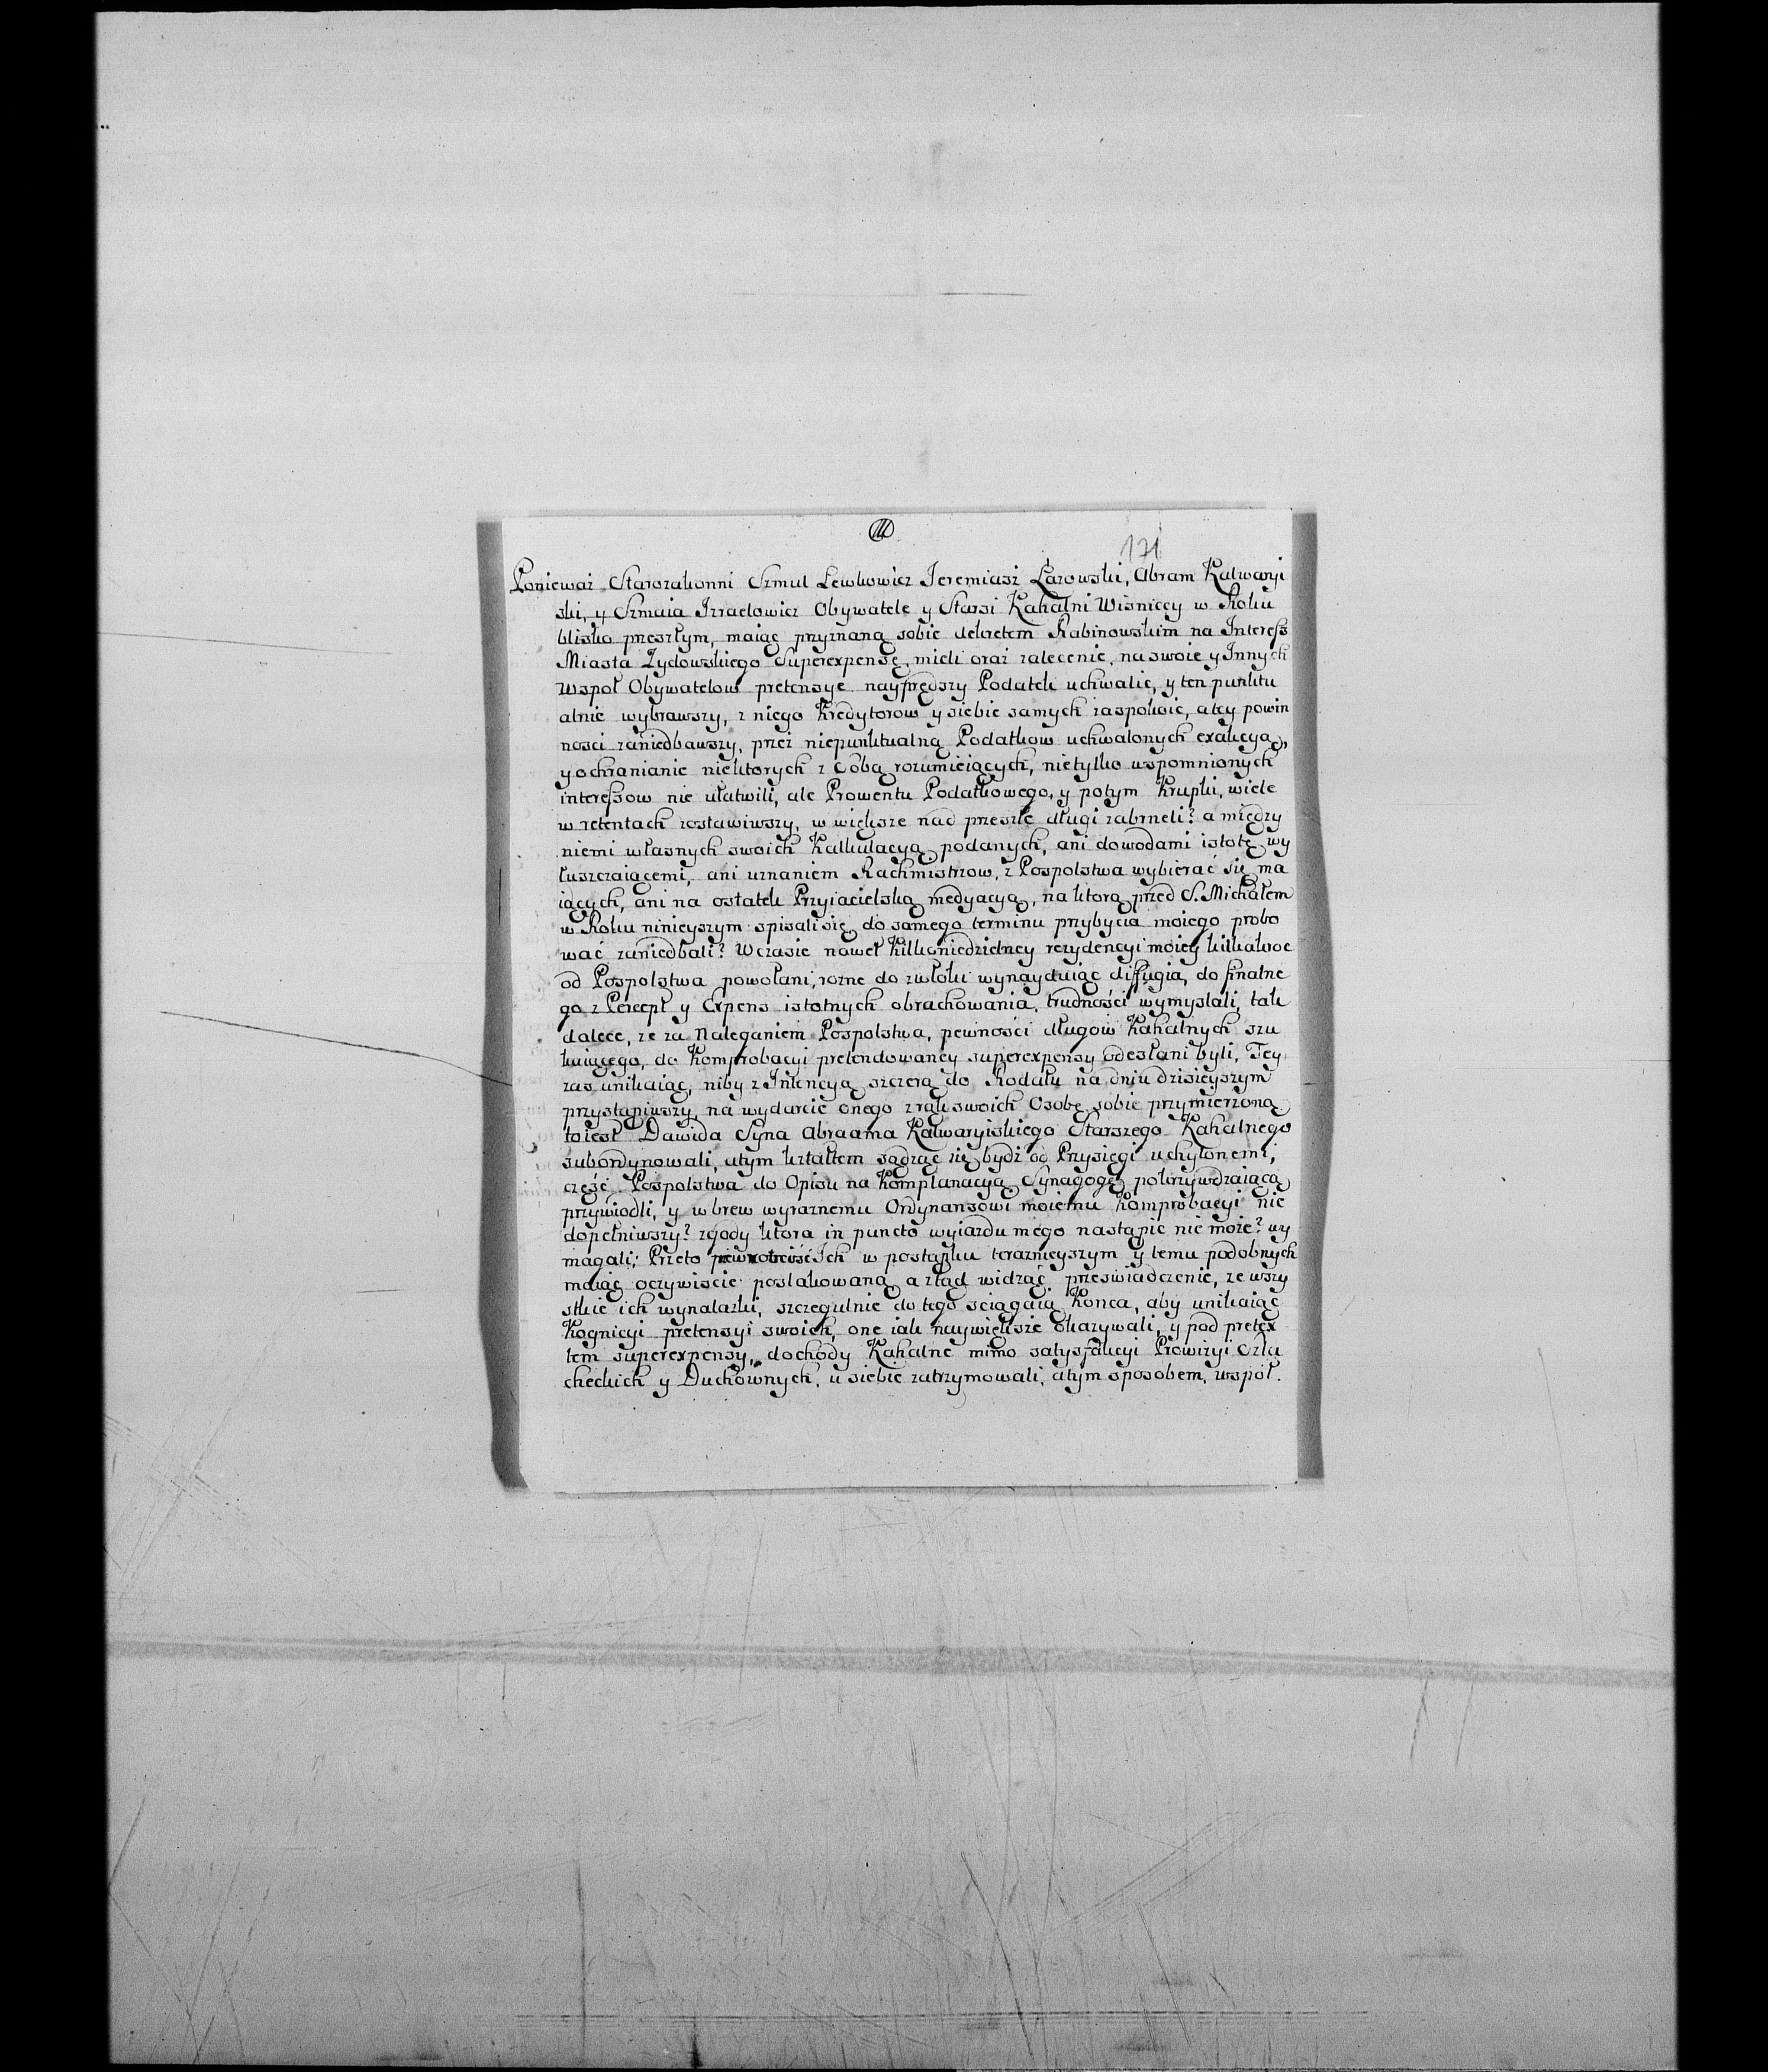 171
Poniewaz Starozakonni Szmul Lewkowicz Jeremiasz Łazowski, Abram Kalwaryi
ski, y Szmaia Izraelowicz Obywatele y Starsi Kahalni Wisniccy w Roku
blisko przeszłym, maiąc przyznaną sobie dekretem Rabinowskim na Interess
Miasta Zydowskiego Superexpensę, mieli oraz zalecenie, na swoie y Innych
Wspoł Obywatelow pretensye nayprędszy Podatek uchwalić, y ten punktu
alnie wybrawszy, z niego Kredytorow y siebie samych zaspokoić, a tey powin
nosci zaniedbawszy, przez niepunktualną Podatkow uchwalonych exakcyą,
y ochranianie niektorych z Sobą rozumieiących, nietylko wspomnionych
interessow nie ułatwili, ale Prowentu Podatkowego, y potym Krupki, wiele
w retentach zostawiwszy, w większe nad przeszłe długi zabrneli? a między
niemi własnych swoich Kalkulacyą podanych, ani dowodami istotę wy
łuszczaiącemi, ani uznaniem Rachmistrzow, z Pospolstwa wybierać się ma
iących, ani na ostatek Przyiacielską medyacyą, na ktorą przed S. Michałem
w Roku ninieyszym spisali się, do samego terminu przybycia moiego probo
wać zaniedbali? W czasie nawet Kilkoniedzielney rezydencyi moiey kilkakroc
od Pospolstwa powołani, rozne do zwłoki wynayduiąc diffugia, do finalne
go z Percept y Expens istotnych obrachowania, trudności wymyslali, tak
dalece, ze za Naleganiem Pospolstwa, pewności długow Kahalnych szu
kaiącego, do Komprobacyi pretendowaney superexpensy odesłani byli, Tey
zas unikaiąc, niby z Intencyą szczerą do Rodału na dniu dzisieyszym
przystąpiwszy, na wydarcie onego z rąk swoich Osobę sobie przymierzoną
toiest Dawida Syna Abraama Kalwaryiskiego Starszego Kahalnego
subordynowali, a tym kształtem sądząc się bydź od Przysięgi uchylonemi,
częsć Pospolstwa do Opisu na Komplanacyą Synagogę pokrzywdzaiącą
przywiodli, y wbrew wyraznemu Ordynansowi moiemu Komprobacyi nie
dopełniwszy? zgody ktora in puncto wyiazdu mego nastąpić nie może? wy
magali; Przeto przewrotność Ich w postąpku teraznieyszym y temu podobnych
maiąc oczywiscie poszlakowaną a ztąd widząc przeswiadczenie, ze wszy
stkie ich wynalazki, szczegulnie do tego sciągaią Konca, aby unikaiąc
Kognicyi pretensyi swoich, one iak naywiększe okazywali, y pod pretex
tem superexpensy, dochody Kahalne mimo satysfakcyi Prowizyi Szla
checkich y Duchownych, u siebie zatrzymowali, a tym sposobem, wspoł.